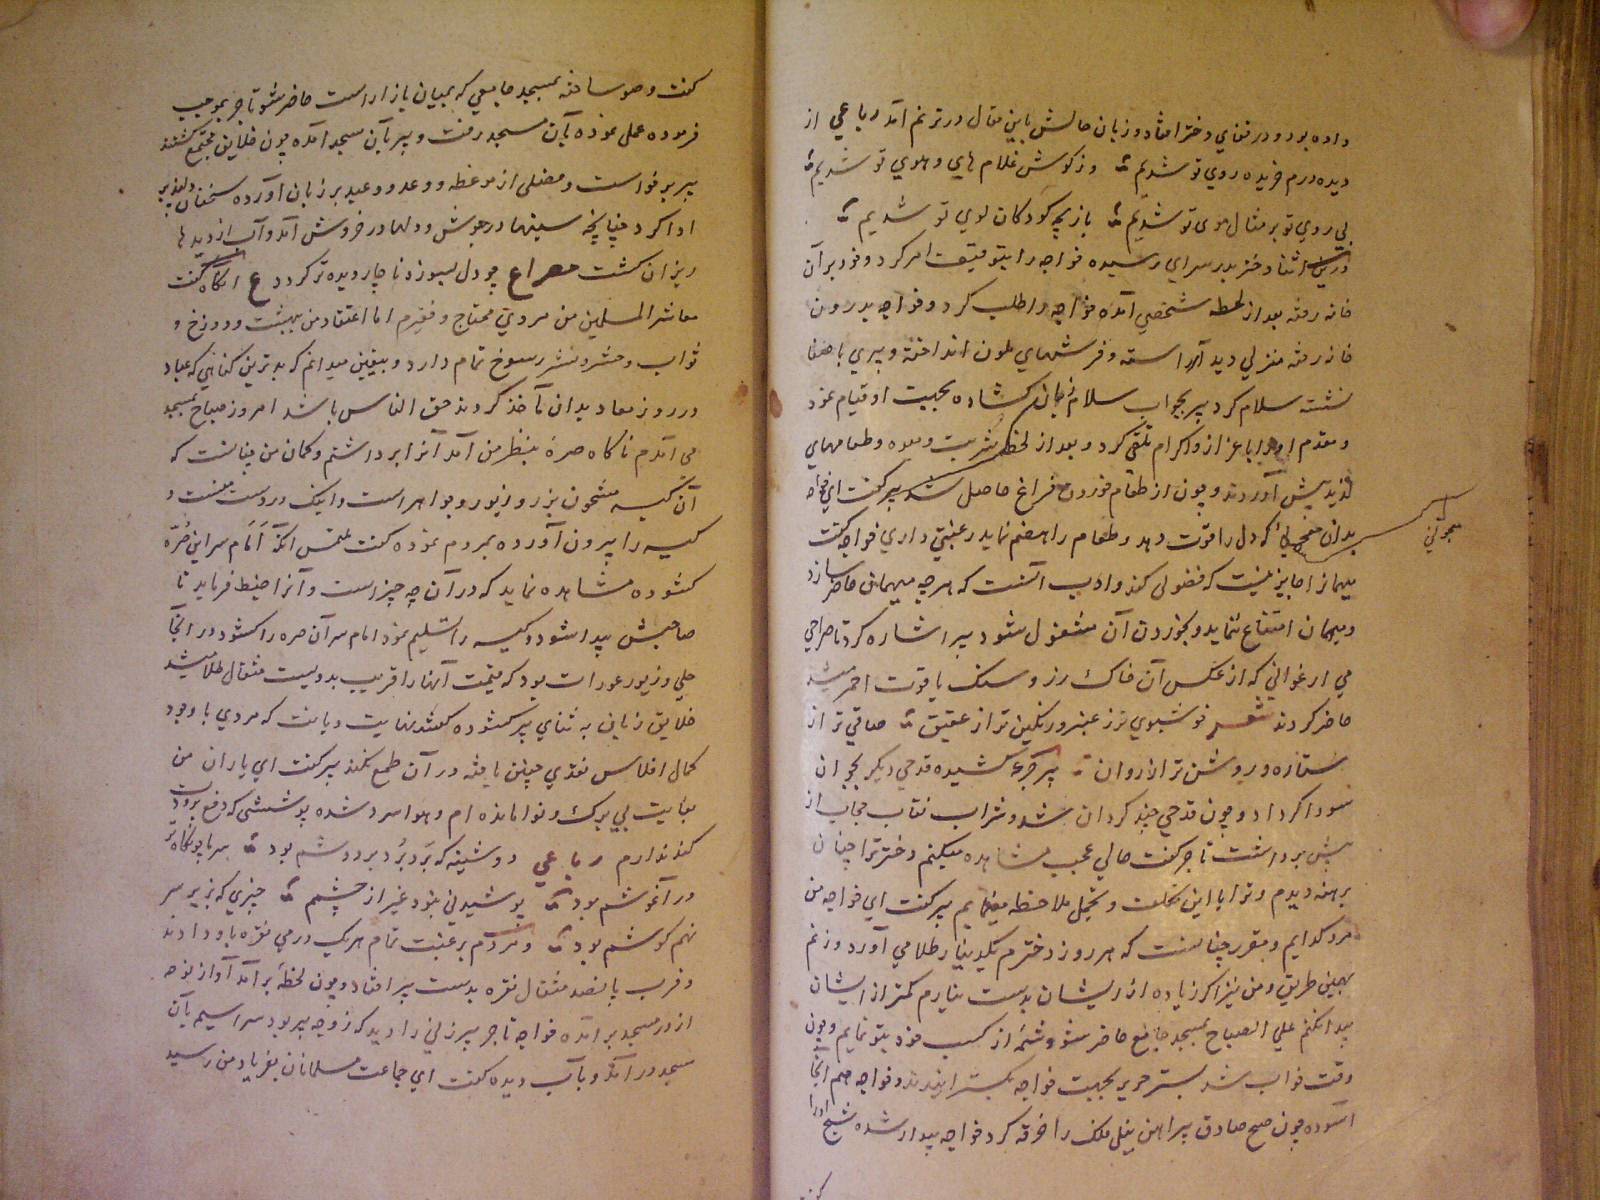 داده بود و در قفای دختر افتاد و زبان حالش باین مقال در ترنم آمد رباعی از
دیده درم خریده روی تو شدیم وز کوش غلام های و هوی تو شدیم
بی روی تو بر مثال موی تو شدیم بازیچه کودکان کوی تو شدیم
درین اثنا دختر بدر سرای رسیده خواجه را بتوقف امر کرد و خود بر آن
خانه رفته بعد از لحظه شخصی آمده خواجه را طلب کرد و خواجه بدرون
خانه رفته منزلی دید آراسته و فرشهای ملون انداخته و پیری با صفا
نشسته سلام کرد پیر بجواب سلام زبان کشاده بجهت او قیام نمود
و مقدم او را باعزاز و اکرام تلقی کرد و بعد از لحظه شربت و میوه و طعامهای
لذیذ پیش آوردند و چون از طعام خوردن فراغ حاصل شد پیر کفت ای خواجه
بدان معجونی که دل را قوت دهد و طعام را هضم نماید رغبتی داری خواجه کفت
معجونی
میهمانرا جایز نیست که فضولی کند و ادب آنست که هر چه میهمان حاضر سازد
و میهمان امتناع ننماید و بخوردن آن مشغول شود پیر اشاره کرد تا صراحی
می ارغوانی که از عکس آن خاک رز و سنک یاقوت احمر میشد
حاضر کردند شعر خوشبوی تر ز عنبر و رنکین تر از عقیق صافی تر از
ستاره و روشن تر از روان پیر جرعه کشیده قدحی دیکر بجوان
سوداکر داد و چون قدحی چند کردان شد و شراب نقاب حجاب از
پیش برداشت تاجر کفت حالی عجب مشاهده میکنم دختر ترا چنان
برهنه دیدم و ترا با این تکلف و تجمل ملاحظه مینمایم پیر کفت ای خواجه من
مرد کدایم و مقرر چنانست که هر روز دخترم یکدینار طلا می آورد و زنم
بهمین طریق و من نیز اکر زیاده از ایشان بدست نیارم کمتر از ایشان
پیدا نکنم علی الصباح بمسجد جامع حاضر شو و شمه از کسب خود بتو نمایم و چون
وقت خواب شد بستر حریر بجهت خواجه بکسترانیدند و خواجه هم آنجا
آسوده چون صبح صادق پیراهن نیلی فلک را خرقه کرد خواجه بیدار شده شیخ او را
کفت
کفت وضو ساخته بمسجد جامعی که بمیان بازار است حاضر شو تاجر بموجب
فرموده عمل نموده بآن مسجد رفت و پیر بآن مسجد آمده چون خلایق مجتمع کشتند
پیر برخواست و فصلی از موعظه و وعد و وعید بر زبان آورده سخنان دلپذیر
ادا کرد چنانچه سینها در جوش و دلها در خروش آمد و آب از دیدها
ریزان کشت مصراع چو دل بسوزد ناچار دیده تر کردد ع آنکاه کفت
معاشر المسلمین من مردی محتاج و فقیرم اما اعتقاد من ببهشت و دوزخ و
ثواب و حشر و نشر رسوخ تمام دارد و بیقین میدانم که بدترین کناهی که عباد
در روز معاد بدان مأخذ کردند حق الناس باشد امروز صباح بمسجد
می آمدم ناکاه صرهٔ بنظر من آمد آنرا برداشتم و کمان من چنانست که
آن کیسه مشحون بزر و زیور و جواهر است و اینک در دست منست و
کیسه را بیرون آورده بمردم نموده کفت ملتمس آنکه امام سر این صره
کشوده مشاهده نماید که در آن چه چیز است و آنرا ضبط فرماید تا
صاحبش پیدا شود و کیسه را تسلیم نمود امام سر آن صره را کشود در آنجا
حلی و زیور عورات بود که قیمت آنها را قریب بدویست مثقال طلا میشد
خلایق زبان به ثنای پیر کشوده کفتند نهایت دیانت که مردی با وجود
کمال افلاس نقدی چنین یافته در آن طمع نکند پیر کفت ای یاران من
بغایت بی برک و نوا مانده ام و هوا سرد شده پوششی که دفع برودت
کند ندارم رباعی دوشینه که برد برد بر دوشم بود سر تا بوکاه تر
در آغوشم بود پوشیدنی نبود غیر از چشم چیزی که بزیر سر
نهم کوشم بود و مردم برغبت تمام هر یک درمی نقره باو دادند
و قرب پانصد مثقال نقره بدست پیر افتاد و چون لحظهٔ برآمد آواز نوحه
از در مسجد برآمده خواجه تاجر پیرزنی را دید که زوجه پیر بود سراسیمه بآن
مسجد درآمد و بآب دیده کفت ای جماعت مسلمانان بفریاد من رسید